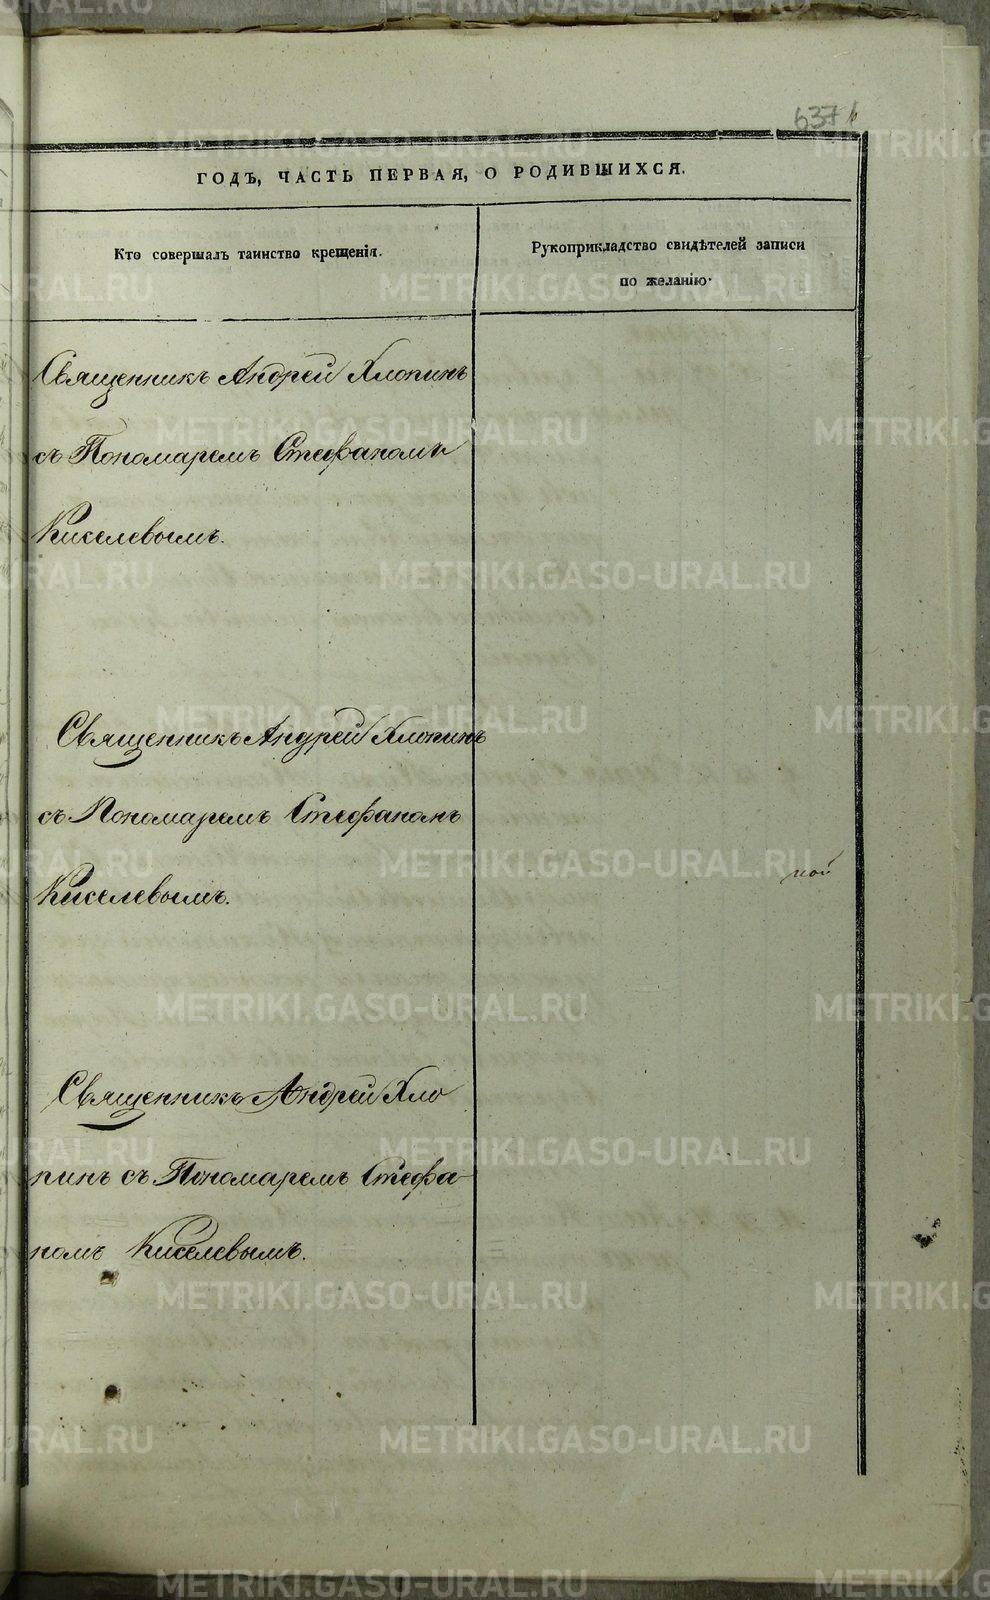 637
ГОДЪ, ЧАСТЬ ПЕРВАЯ, О РОДИВШИХСЯ.
Кто совершалъ таинство крещенія.
Рукоприкладство свидѣтелей записи
по желанію.
Священникъ Андрей Хлопинъ
съ Пономаремъ Стефаномъ
Киселевымъ.
Священникъ Андрей Хлопинъ
съ Пономаремъ Стефаномъ
Киселевымъ.
ной
Священникъ Андрей Хло
пинъ съ Пономаремъ Стефа-
номъ Киселевымъ.
METRIKI.GASO-URAL.RU